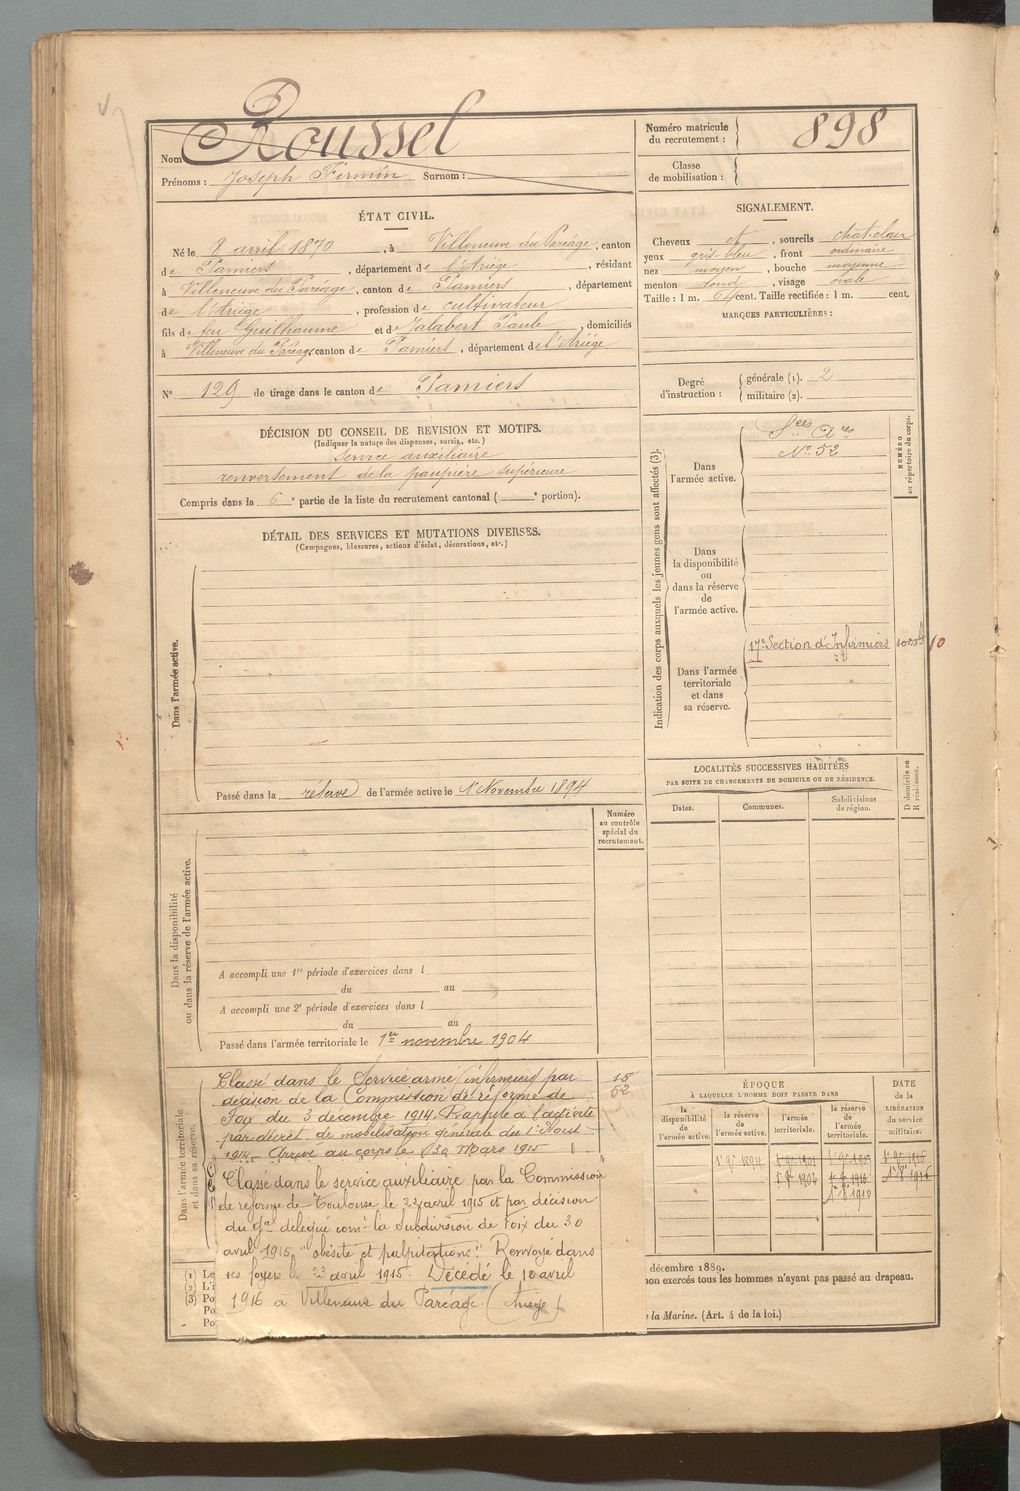 Nom Roussel
Prénoms : Joseph Firmin Surnom :
Numéro matricule du recrutement : 898
Classe de mobilisation :
ÉTAT CIVIL.
Né le 8 avril 1870, à Villeneuve du Paréage, canton
de Pamiers, département de l'Ariège, résidant
à Villeneuve du Paréage, canton de Pamiers, département
de l'Ariège, profession de cultivateur
fils de feu Guilhaume et de Jalabert Paule, domiciliés
à Villeneuve du Paréage, canton de Pamiers, département de l'Ariège
SIGNALEMENT.
Cheveux et, sourcils chat. clair
yeux gris-bleu, front ordinaire
nez moyen, bouche moyenne
menton rond, visage ovale
Taille : 1 m. cent. Taille rectifiée : 1 m. cent.
MARQUES PARTICULIÈRES :
N° 129 de tirage dans le canton de Pamiers
Degré d'instruction : générale (1). 2
militaire (2).
DÉCISION DU CONSEIL DE REVISION ET MOTIFS.
(Indiquer la nature des dispenses, sursis, etc.)
service auxiliaire
renversement de la paupière supérieure
Compris dans la 6e partie de la liste du recrutement cantonal ( e portion).
Indication des corps auxquels les jeunes gens sont affectés (3).
NUMÉRO au répertoire du corps.
Dans l'armée active.
Sces Ares
N° 52
Dans la disponibilité ou dans la réserve de l'armée active.
17e Section d'Infirmiers
Dans l'armée territoriale et dans sa réserve.
DÉTAIL DES SERVICES ET MUTATIONS DIVERSES.
(Campagnes, blessures, actions d'éclat, décorations, etc.)
Dans l'armée active.
Passé dans la réserve de l'armée active le 1er Novembre 1894
LOCALITÉS SUCCESSIVES HABITÉES
PAR SUITE DE CHANGEMENTS DE DOMICILE OU DE RÉSIDENCE.
Dates.
Communes.
Subdivisions de région.
D domicile ou R résidence.
Numéro au contrôle spécial du recrutement.
Dans la disponibilité ou dans la réserve de l'armée active.
A accompli une 1re période d'exercices dans l
du au
A accompli une 2e période d'exercices dans l
du au
Passé dans l'armée territoriale le 1er novembre 1904
Dans l'armée territoriale et dans sa réserve.
Classé dans le Service armé (infirmiers) par
décision de la Commission de réforme de
Foix du 3 décembre 1914. Rappelé à l'activité
par décret de mobilisation générale du 1er Aout
1914. Arrivé au corps le 30 Mars 1915
15
52
Classé dans le service auxiliaire par la Commission
de réforme de Toulouse le 22 avril 1915 et par décision
du Gal délégué comt la Subdivision de Foix du 30
avril 1915 "obésité et palpitations." Renvoyé dans
ses foyers le 23 avril 1915. Décédé le 10 avril
1916 à Villeneuve du Paréage (Ariège)
ÉPOQUE
À LAQUELLE L'HOMME DOIT PASSER DANS
la disponibilité de l'armée active.
la réserve de l'armée active.
l'armée territoriale.
la réserve de l'armée territoriale.
DATE de la LIBÉRATION du service militaire.
(1) Le
(2) L'i
(3) Po
Po
Po
décembre 1889.
non exercés tous les hommes n'ayant pas passé au drapeau.
la Marine. (Art. 4 de la loi.)